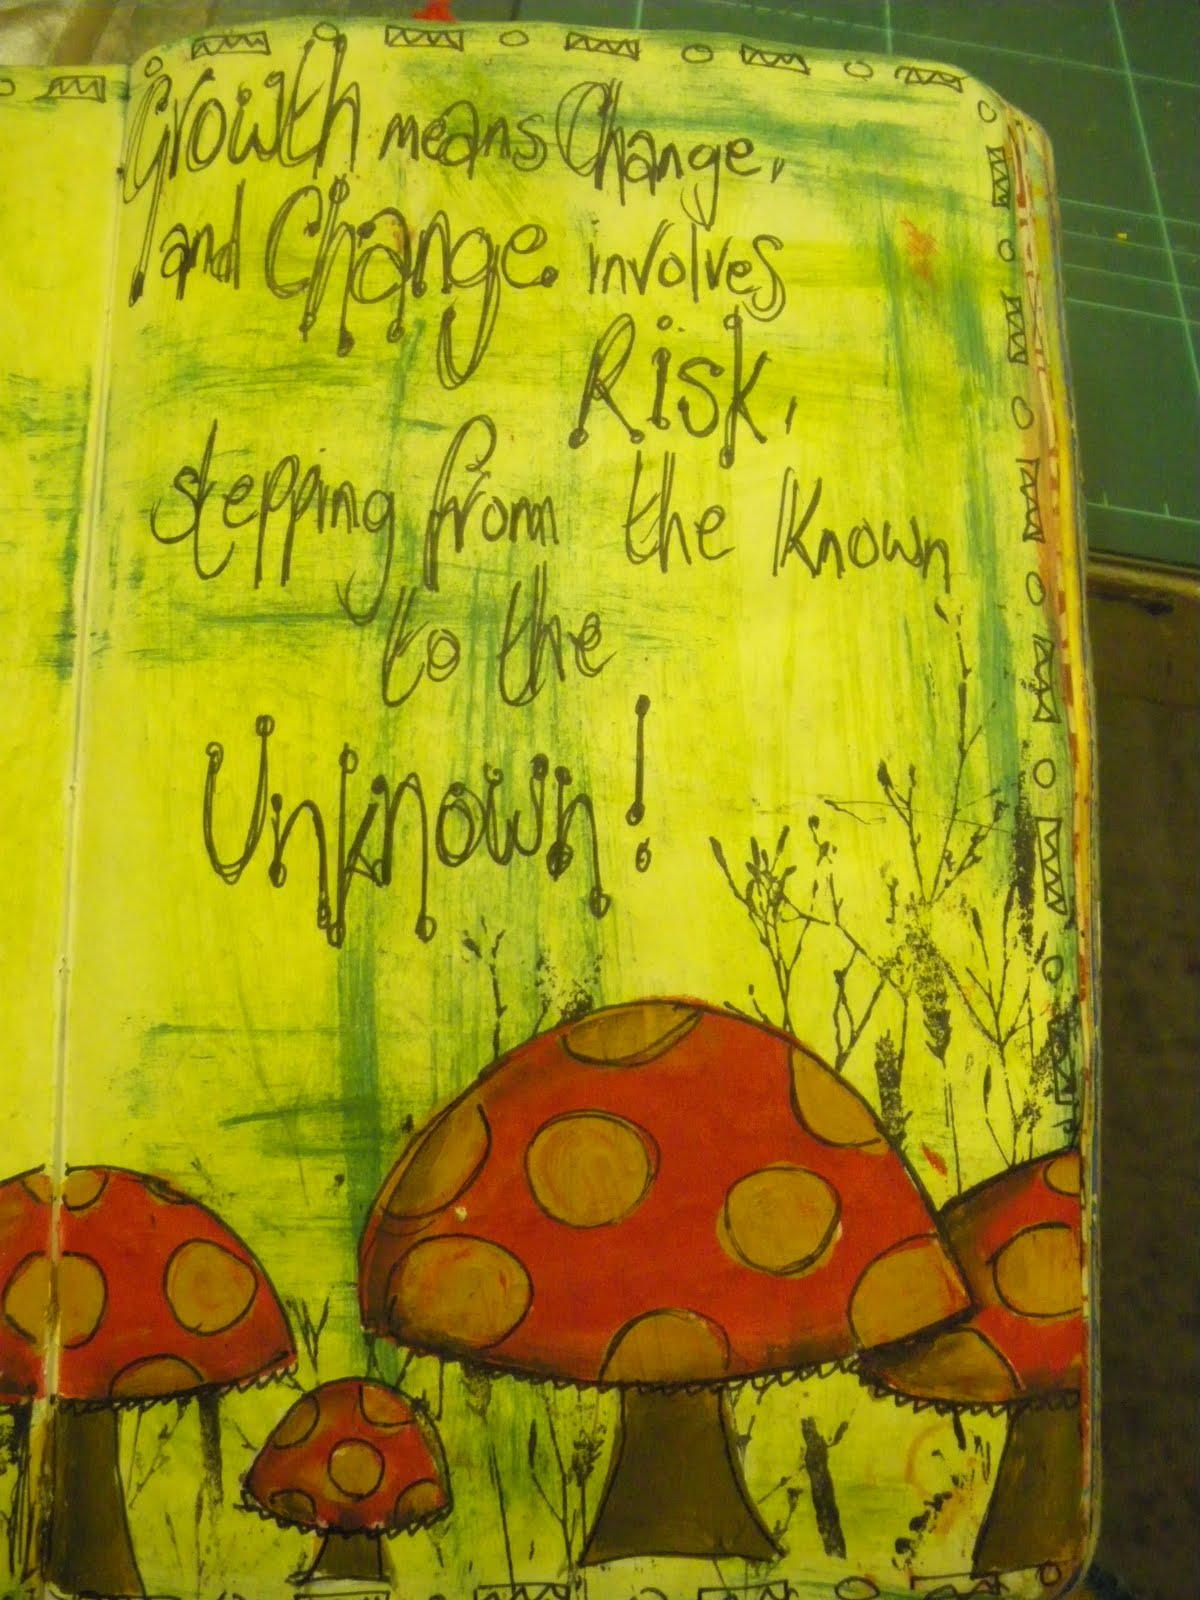 Growth means Change,
and Change. involves
Risk,
stepping from the Known
to the
Unknown!